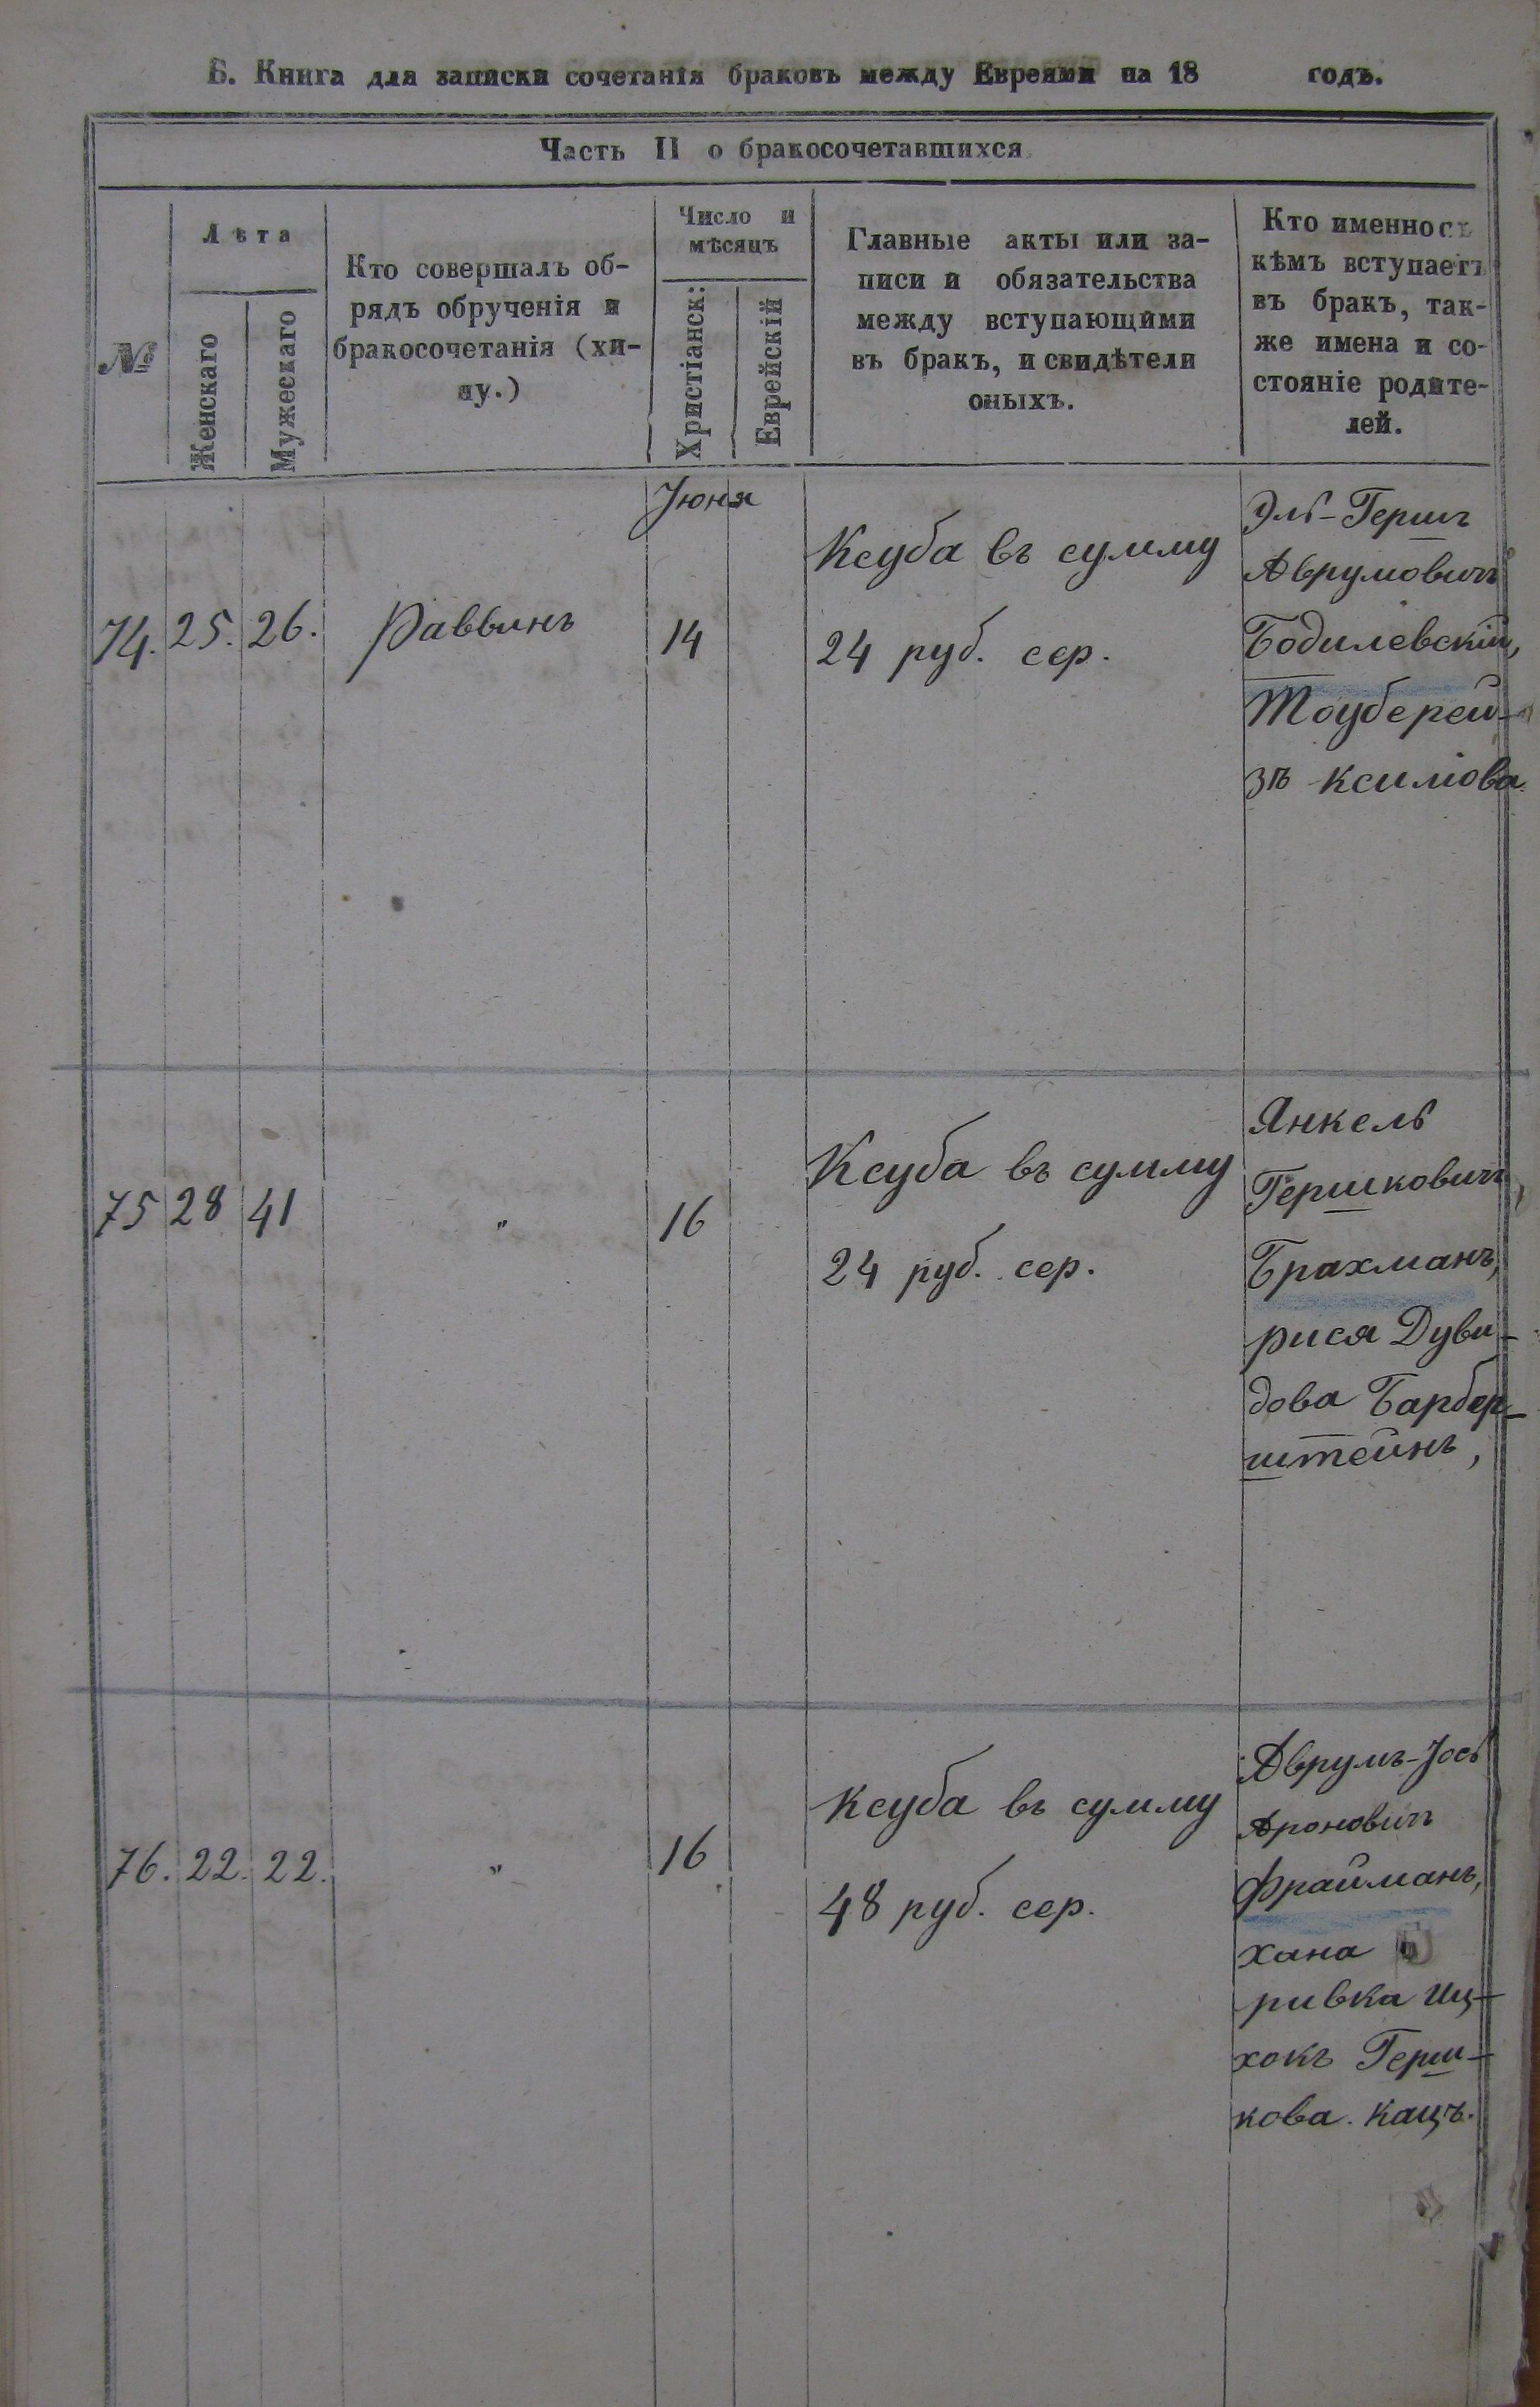 Б. Книга для записки сочетанія браковъ между Евреями на 18 годъ.
Часть II о бракосочетавшихся
№
Лѣта
Женскаго
Мужескаго
Кто совершалъ об-
рядъ обрученія и
бракосочетанія (хи-
пу.)
Число и
мѣсяцъ
Христіанск:
Еврейскій
Главные акты или за-
писи и обязательства
между вступающими
въ бракъ, и свидѣтели
оныхъ.
Кто именно съ
кѣмъ вступаетъ
въ бракъ, так-
же имена и со-
стояніе родите-
лей.
Іюня
74. 25. 26. Раввинъ 14
Ксуба въ сумму
24 руб. сер.
Эль-Гершъ
Аврумовичъ
Бодилевскій,
Тоуберей-
зъ
75 28 41 " 16
Ксуба въ сумму
24 руб. сер.
Янкель
Гершковичъ
Брахманъ,
рися Дуви-
дова Барбер-
штейнъ,
76. 22. 22. " 16
Ксуба въ сумму
48 руб. сер.
Аврумъ-Іось
Ароновичъ
Фрайманъ,
хана
ривка Иц-
хокъ Герш-
кова. Кацъ.